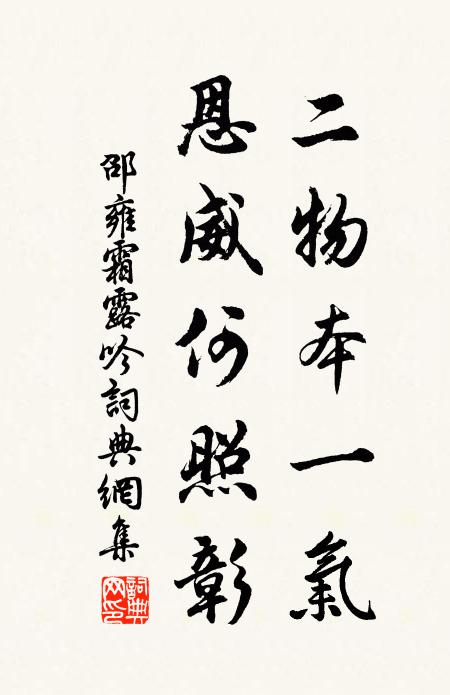 二物本一氣
恩威何照彰
邵雍霜露吟詞典網集
詞典網印